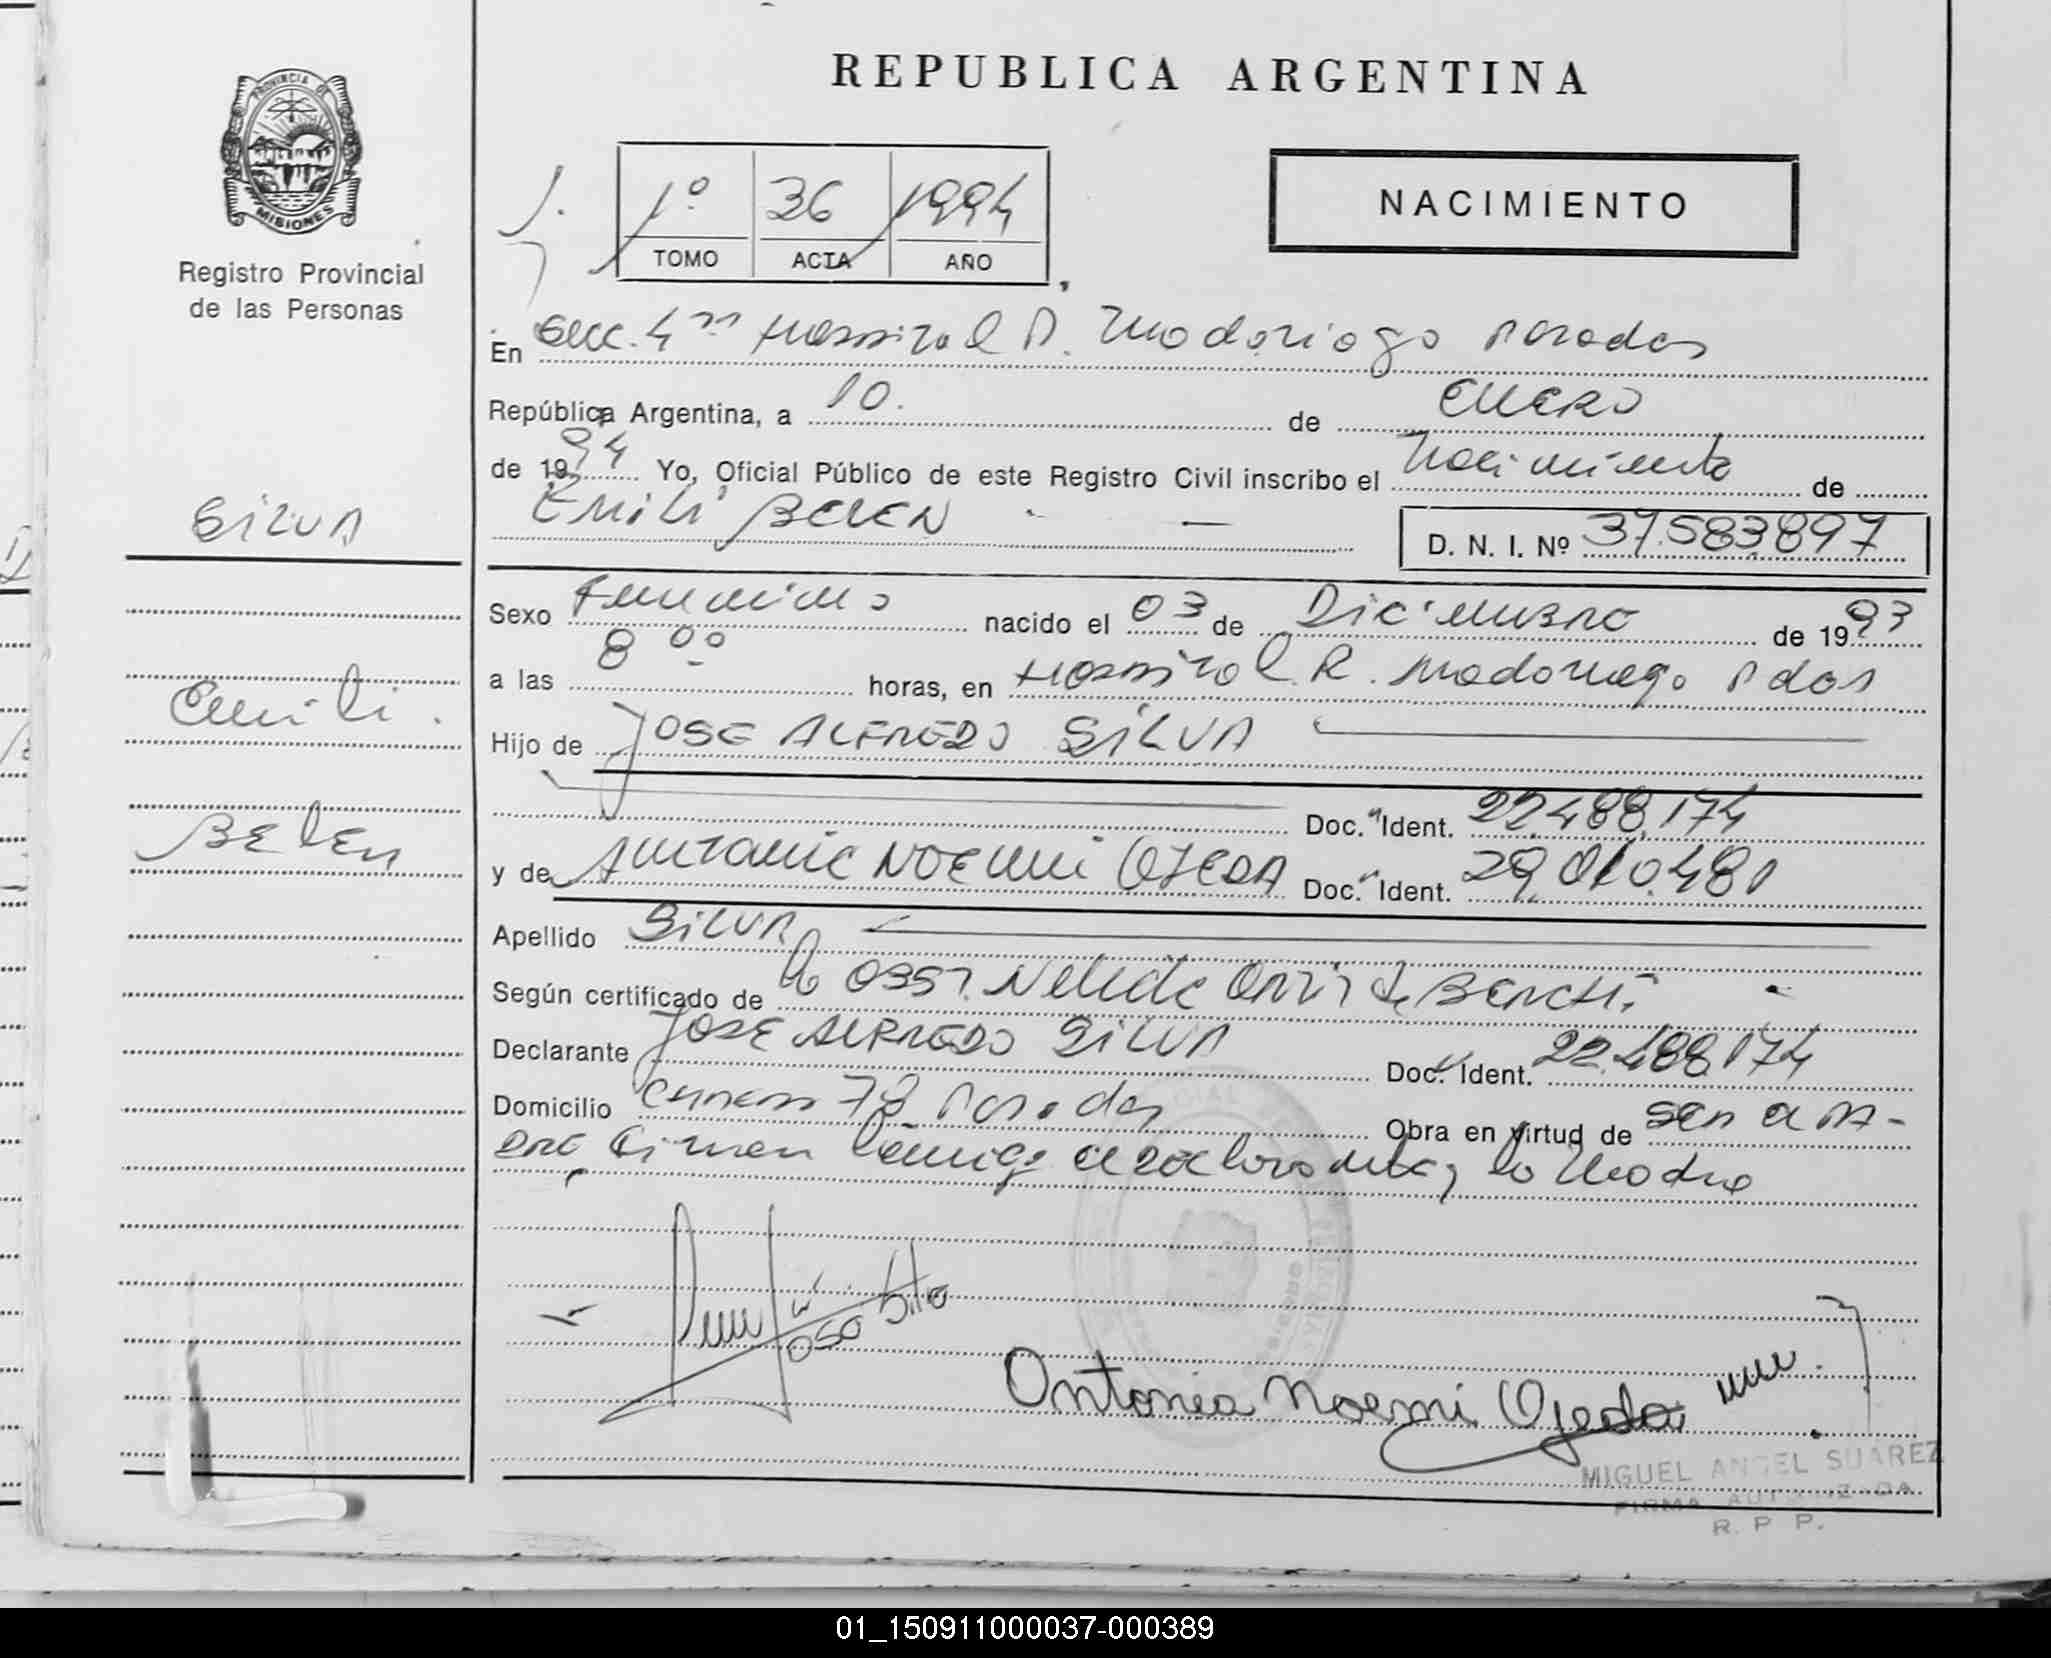 REPUBLICA ARGENTINA
PROVINCIA DE
MISIONES
Registro Provincial
de las Personas
1º 36 1994
TOMO ACTA AÑO
NACIMIENTO
En Secc. 4ª Hospital R. Madariaga Posadas
República Argentina, a 10. de ENERO
de 1994 Yo, Oficial Público de este Registro Civil inscribo el Nacimiento de
EMILI BELEN
D. N. I. Nº 37.583.897
SILVA
Emili.
Belen
Sexo Femenino nacido el 03 de Diciembre de 1993
a las 8 00 horas, en Hospital R. Madariaga Pdas
Hijo de JOSE ALFREDO SILVA
Doc. Ident. 22.488.174
y de Antonia NOEMI OJEDA Doc. Ident. 29.010.480
Apellido SILVA
Según certificado de la Obst. Nelida
Declarante JOSE ALFREDO SILVA Doc. Ident. 22.488.174
Domicilio 78 Posadas Obra en virtud de ser el PA-
DRE Firman conmigo el declarante y la Madre
Antonia Noemi Ojeda
MIGUEL ANGEL SUAREZ
FIRMA AUTORIZADA
R. P. P.
01_150911000037-000389